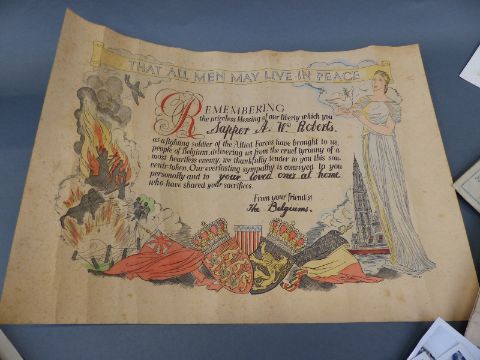 THAT ALL MEN MAY LIVE IN PEACE
REMEMBERING
the priceless blessing of our liberty which you
Sapper A. W. Roberts.
as a fighting soldier of the Allied Forces have brought to us,
people of Belgium, delivering us from the cruel tyranny of a
most heartless enemy, we thankfully tender to you this sou-
venir-token. Our everlasting sympathy is conveyed to you
personally and to your loved ones at home
who have shared your sacrifices.
From your friends:
The Belgiums.